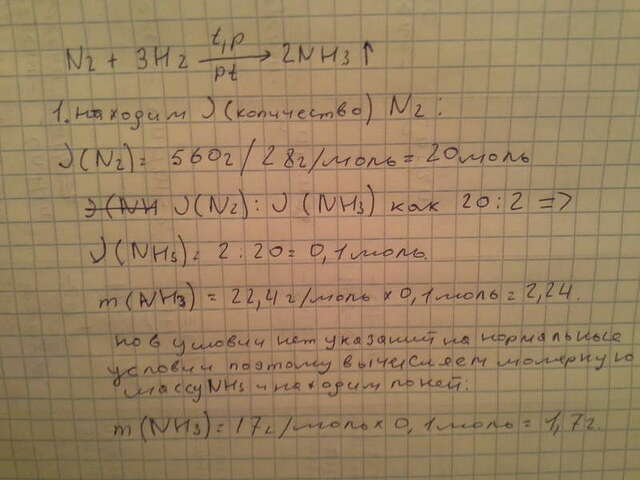 N2 + 3H2 t,p pt → 2NH3↑
1. находим ν (количество) N2:
ν(N2)= 560г/28г/моль = 20 моль
ν(NH ν(N2): ν(NH3) как 20:2 =>
ν(NH3)= 2:20= 0,1 моль.
m(NH3) = 22,4 г/моль × 0,1 моль = 2,24.
но в условии нет указаний на нормальные
условии поэтому вычисляем молярную
массу NH3 и находим по ней:
m(NH3)= 17г/моль × 0,1 моль = 1,7г.